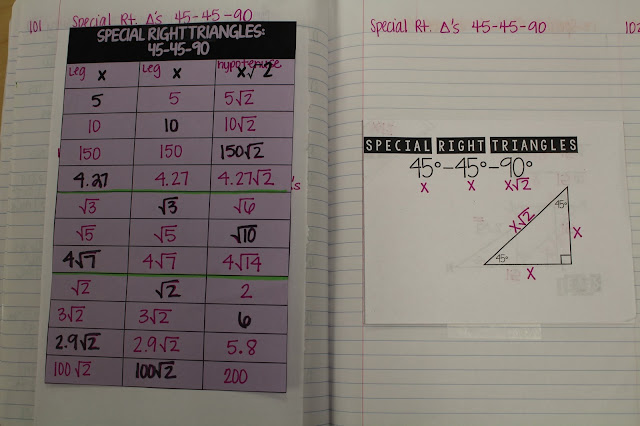 101 Special Rt. Δ's 45-45-90
SPECIAL RIGHT TRIANGLES:
45-45-90
Leg x Leg x hypotenuse x√2
5 5 5√2
10 10 10√2
150 150 150√2
4.27 4.27 4.27√2
's
√3 √3 √6
√5 √5 √10
4√7 4√7 4√14
√2 √2 2
3√2 3√2 6
2.9√2 2.9√2 5.8
100√2 100√2 200
Special Rt. Δ's 45-45-90 102
SPECIAL RIGHT TRIANGLES
45°-45°-90°
x x x√2
45°
x√2
x
45°
x